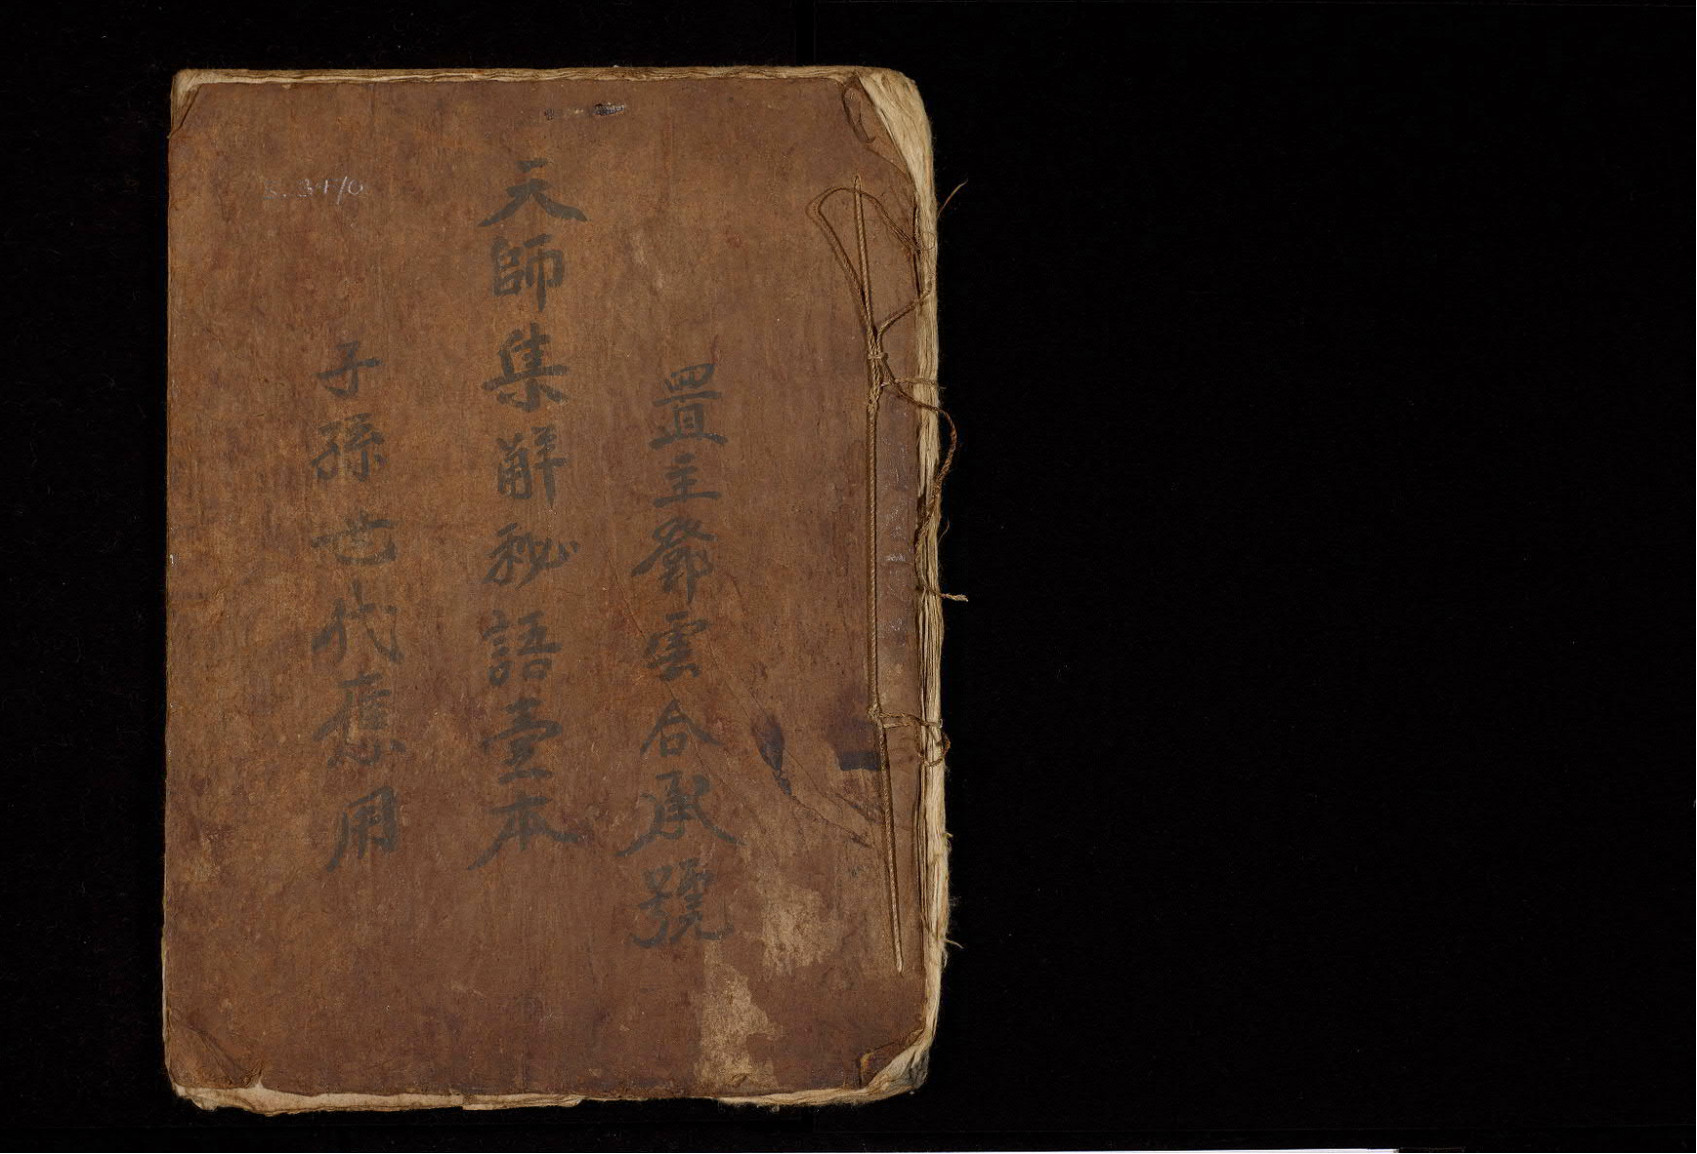 置主鄧雲合承號
天師集解秘語壹本
子孫世代應用